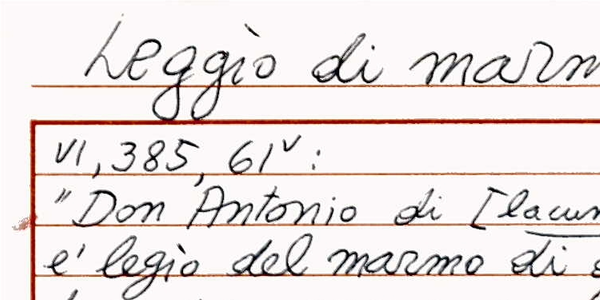 Leggìo di marm
VI, 385, 61v:
"Don Antonio di [lacun
e' legìo del marmo di